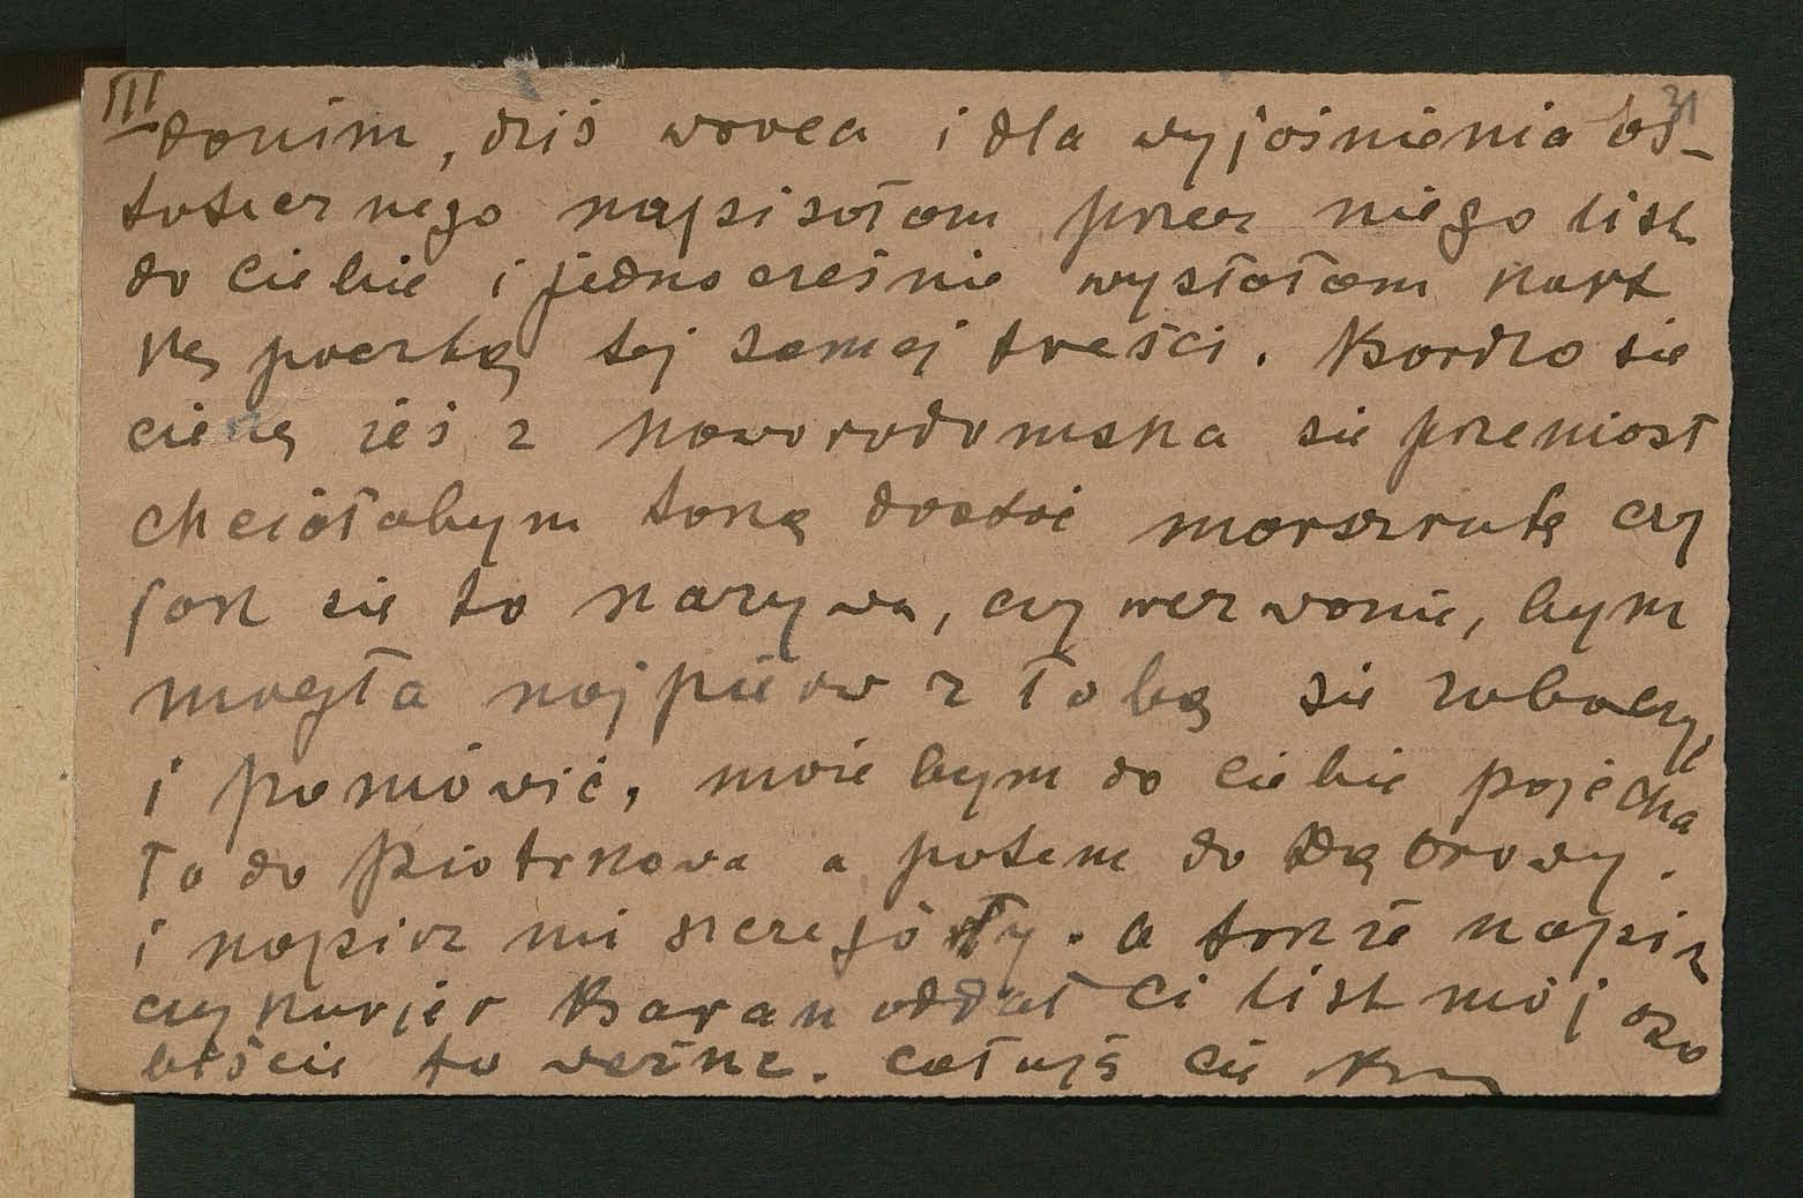 III
31
danim, dziś wraca i dla wyjaśnienia os-
tatecznego napisałam przez niego list
do ciebie i jednocześnie wysłałam kart
kę pocztą tej samej treści. Bardzo sie
cieszę żeś z noworodomska się przeniosł
chciałabym dostać marszrutę czy
jak się to nazywa, czy wezwanie, bym
mogła najpierw z Tobą się zobaczyć
i pomówić, może bym do ciebie pojecha
ła do Piotrkowa a potem do Dąbrowy.
i napisz mi szczegóły. a także napisz
czy kurjer Baran oddał Ci list mój oso
biście to ważne. całuję Cię